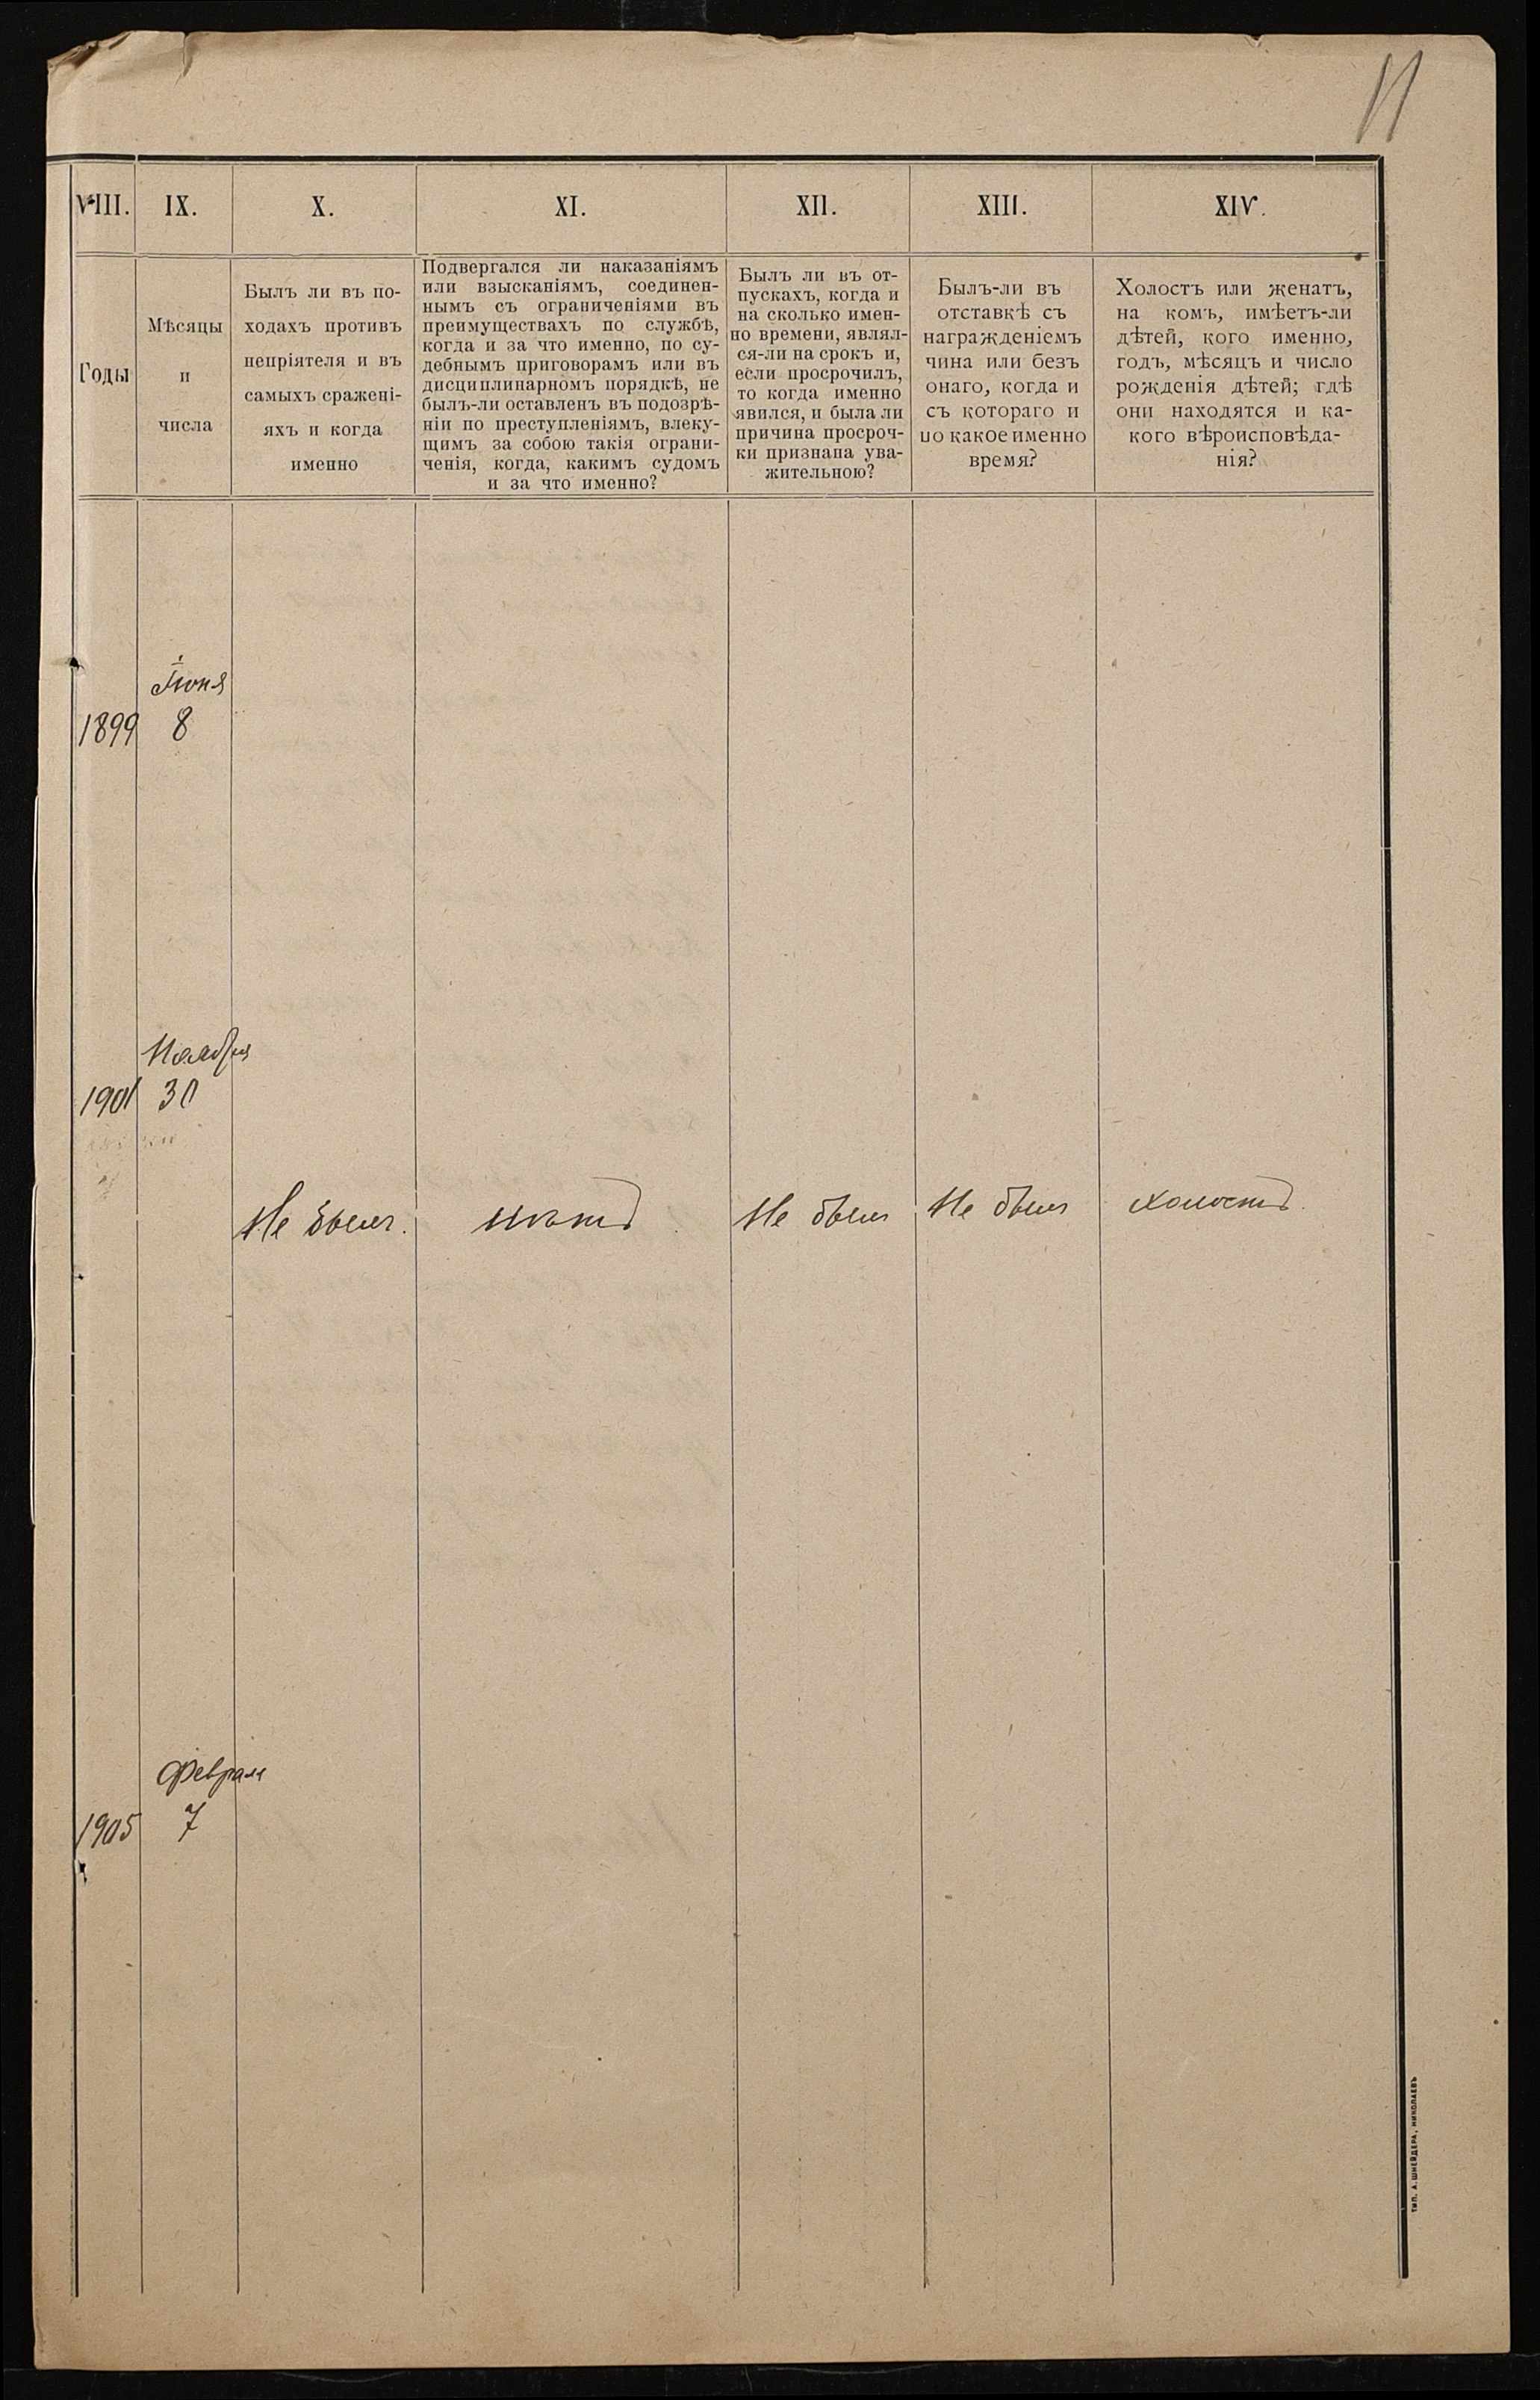 11
VIII. IX. X. XI. XII. XIII. XIV.
Годы
Мѣсяцы
и
числа
Былъ ли въ по-
ходахъ противъ
непріятеля и въ
самыхъ сражені-
яхъ и когда
именно
Подвергался ли наказаніямъ
или взысканіямъ, соединен-
нымъ съ ограниченіями въ
преимуществахъ по службѣ,
когда и за что именно, по су-
дебнымъ приговорамъ или въ
дисциплинарномъ порядкѣ, не
былъ-ли оставленъ въ подозрѣ-
ніи по преступленіямъ, влеку-
щимъ за собою такія ограни-
ченія, когда, какимъ судомъ
и за что именно?
Былъ ли въ от-
пускахъ, когда и
на сколько имен-
но времени, являл-
ся-ли на срокъ и,
если просрочилъ,
то когда именно
явился, и была ли
причина просроч-
ки признана ува-
жительною?
Былъ-ли въ
отставкѣ съ
награжденіемъ
чина или безъ
онаго, когда и
съ котораго и
по какое именно
время?
Холостъ или женатъ,
на комъ, имѣетъ-ли
дѣтей, кого именно,
годъ, мѣсяцъ и число
рожденія дѣтей; гдѣ
они находятся и ка-
кого вѣроисповѣда-
нія?
Іюня
1899 8
Ноября
1901 30
Не былъ. Нѣтъ Не былъ Не былъ Холостъ.
Февраля
1905 7
ТИП. А. ШНЕЙДЕРА, НИКОЛАЕВЪ